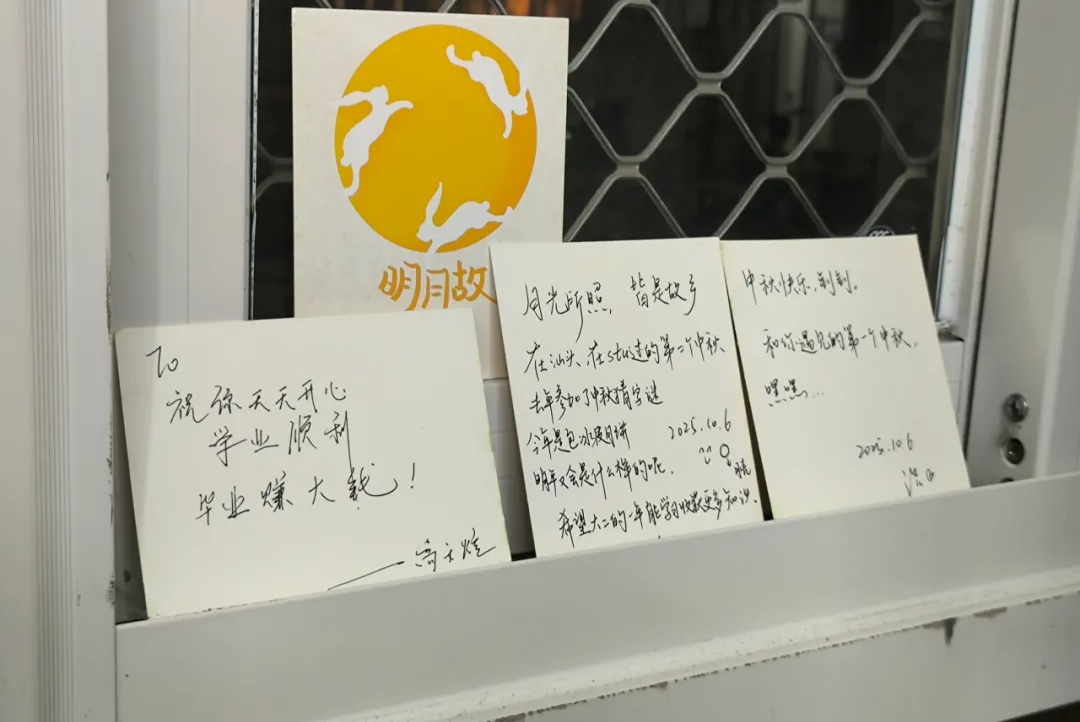 明月故
TO
祝你天天开心
学业顺利
毕业赚大钱！
月光所照，皆是故乡
在汕头、在stu过的第二个中秋
去年参加了中秋猜字谜
今年是包冰皮月饼
2025.10.6
明年又会是什么样的呢.
希望大二的一年能学习收获更多知识.
中秋快乐,钊钊。
和你遇见的第一个中秋,
嘿嘿…
2025.10.6